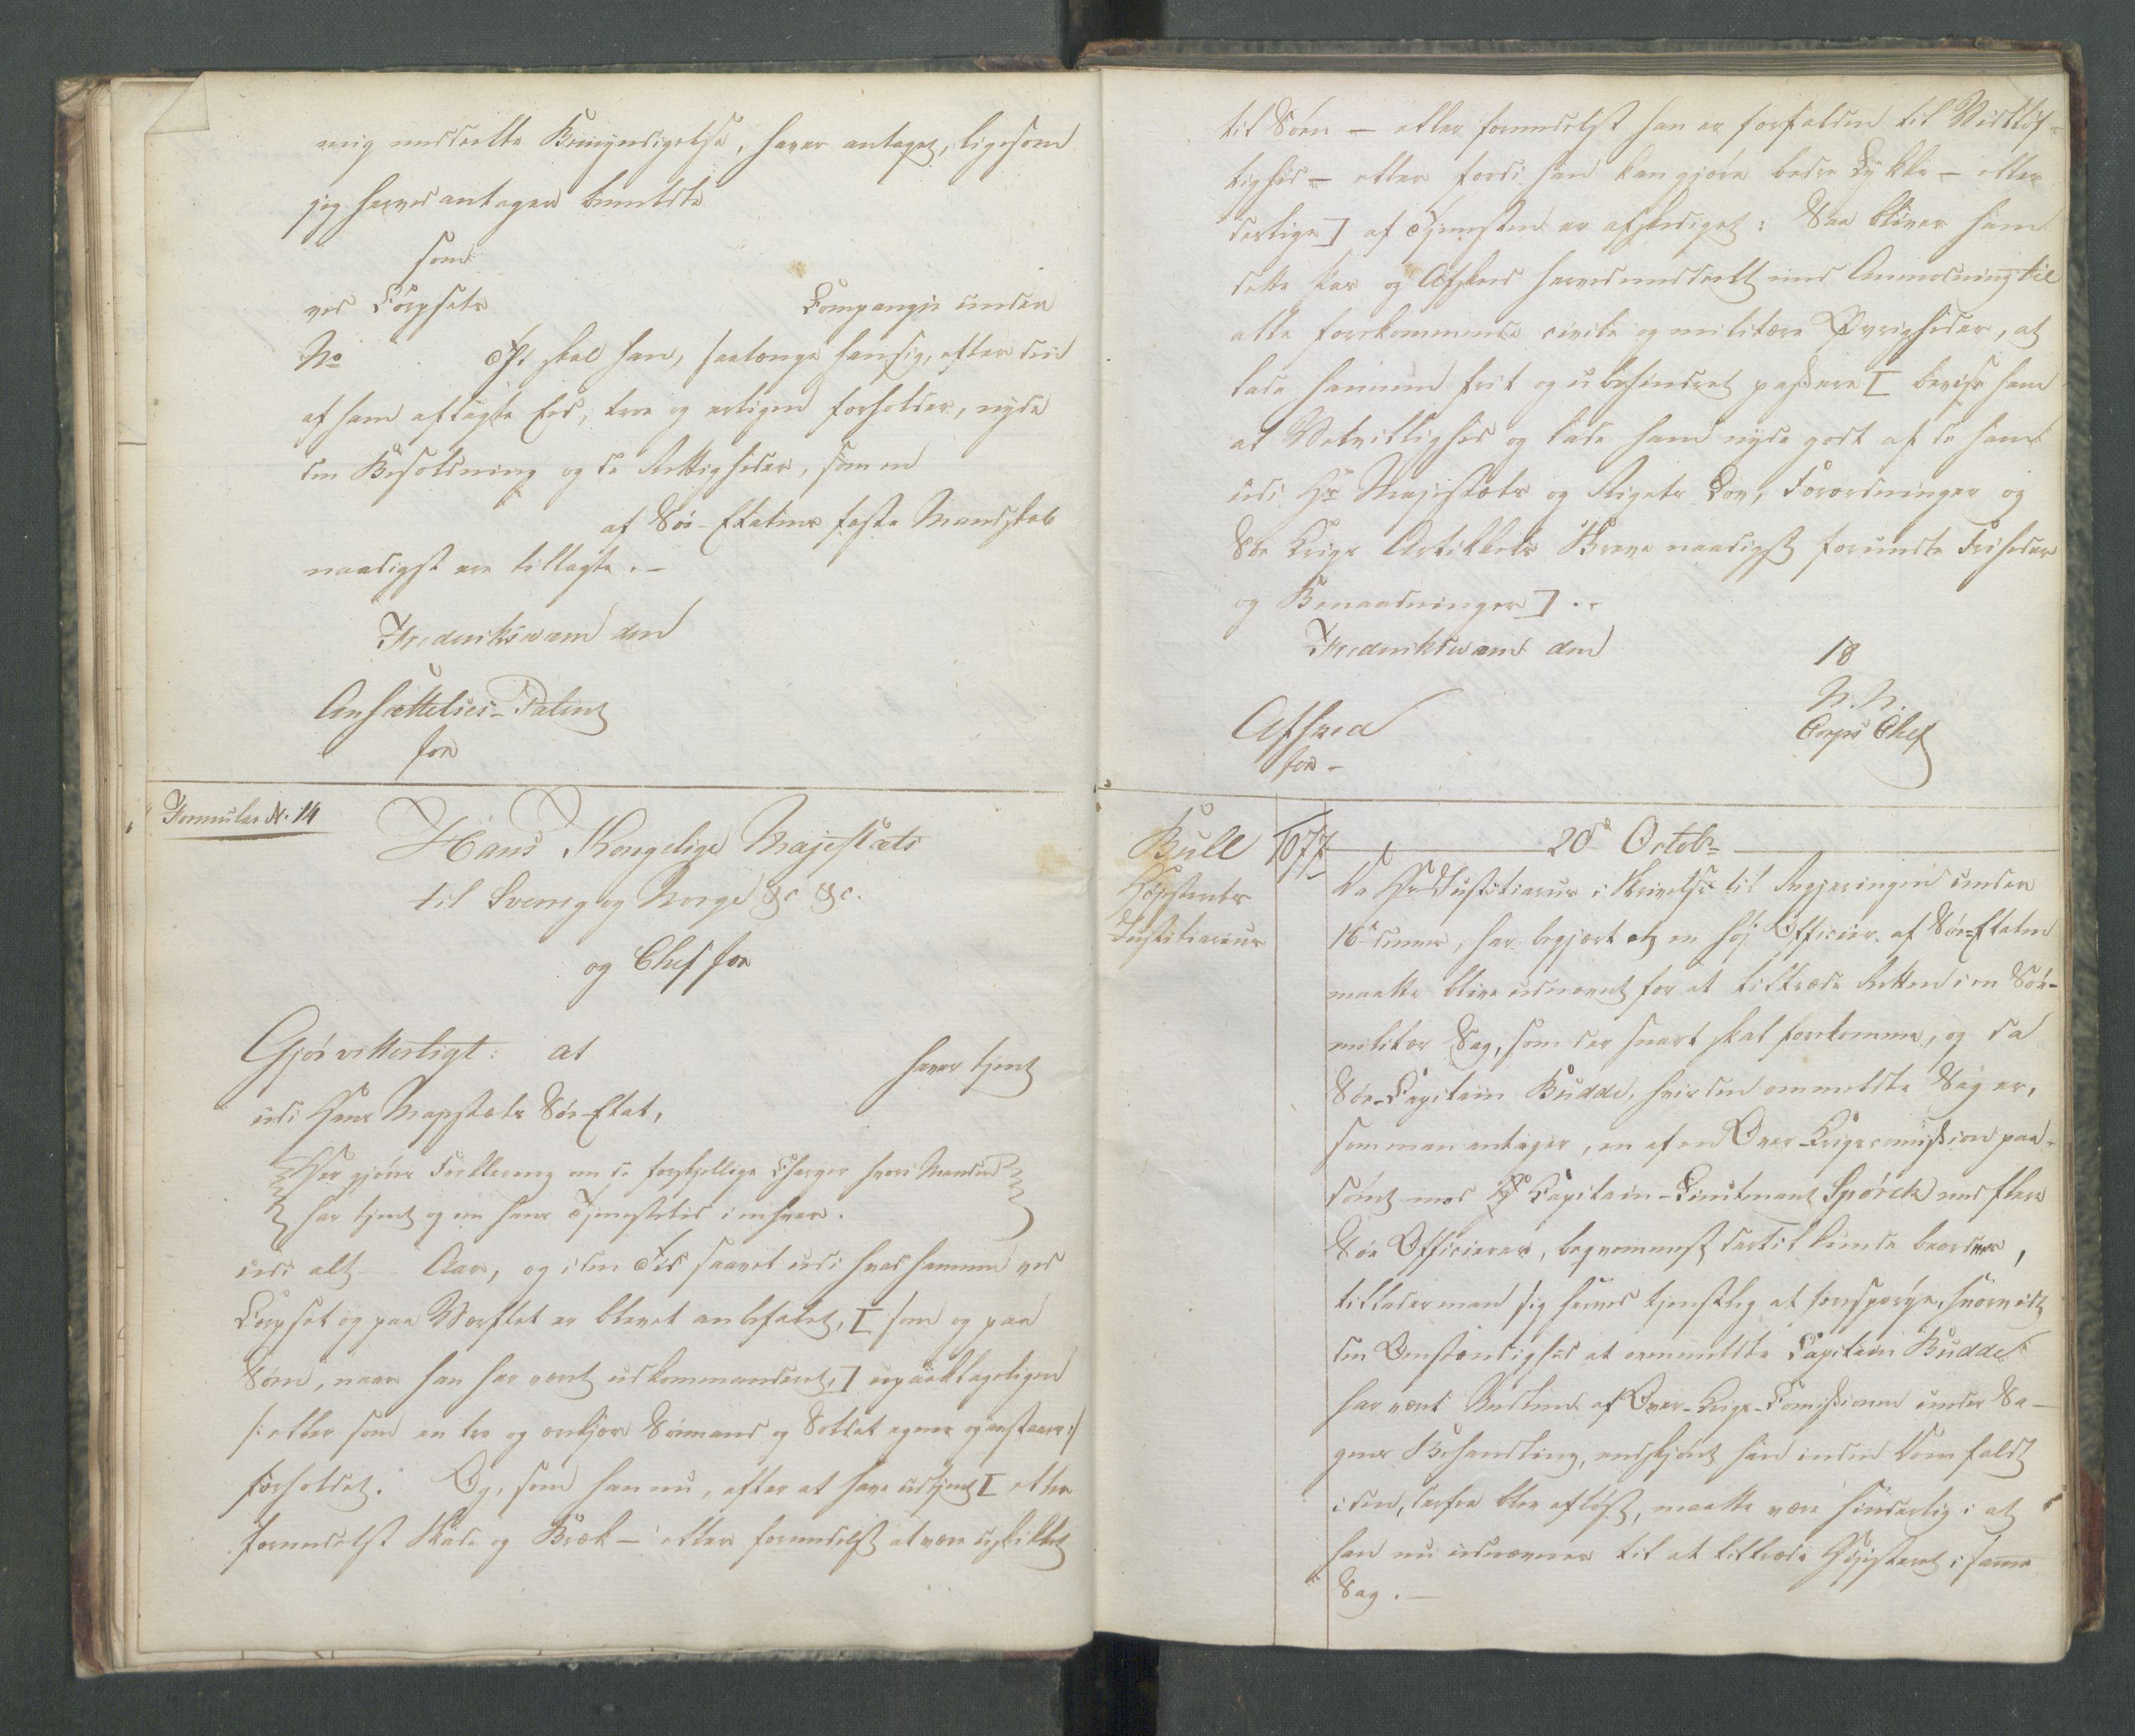 mig meddeelte Bemyndigelse, haver antaget, ligesom
jeg herved antager bemeldte
som
ved Corpsets Compagnie under
No Thi skal han, saalænge han sig, efter den
af ham aflagte Eed, troe og ærligen forholder, nyde
den Besoldning og de Rettigheder, som en
af Søe-Etatens faste Mandskab
naadigst ere tillagte. -
Frederiksværn den
Ansættelses-Patent
for
Formular N. 14
Hans Kongelige Majestæts
til Sverrig og Norge &c &c.
og Chef for
Gjør vitterligt: at haver tjent
udi Hans Majestæts Søe-Etat,
Her gjøres Forklaring om de forskjellige Charger hvori Manden
har tjent og om hans Tjenestetid i enhver.
udi alt Aar, og i den Tid saavel udi hvad hannem ved
Corpset og paa Værftet er blevet anbefalet, [som og paa
Søen, naar han har været udkommanderet,] upaaklageligen
/: eller som en tro og ærekjær Søemand og Soldat egner og anstaaer :/
forholdet. Og, som han nu, efter at have udtjent [eller
formedelst Skade og Bræk - eller formedelst at være uskikket
til Søen - eller formedelst han er forfalden til Vidtløf-
tighed - eller fordi han kan gjøre bedre Lykke - eller
deslige] af Tjenesten er afskediget: Saa bliver ham
dette Pas og Afskeed herved meddeelt med Anmodning til
alle forekommende civile og militære Øvrigheder, at
lade hannem frit og ubehindret passere [bevise ham
al Velvillighed og lade ham nyde godt af de ham
udi Hs Majestæts og Rigets Lov, Forordninger og
Søe Krigs Artikkels Breve naadigst forundte Friheder
og Benaadninger]. -
Frederiksværn den 18
N. N.
Corps Chef
Afskeed
for -
Bull
Høiesterets
Justitiarius
1077
20de Octobr
Da Hr Justitiarius i Skrivelse til Regjeringen under
16de dennes, har begjært at en høj Officier af Søe-Etaten
maatte blive udnævnt for at tiltræde Retten i en Søe-
militær Sag, som der snart skal forekomme, og da
Søe-Capitain Budde, hvis den ommeldte Sag er,
som man antager, en af en Over-Krigscomission paa-
dømt mod Capitain-Lieutenant Spørck med flere
Søe Officierer, beqvemmest dertil kunde beordres,
tillader man sig herved tjenstlig at forespørge, hvorvidt
den Omstændighed at ommeldte Capitain Budde
har været Medlem af Over-Krigs-Comissionen under Sa-
gens Behandling, endskjønt han inden Dom faldt
i den, derfra blev afløst, maatte være hinderlig i at
han nu udnævnes til at tiltræde Høiesteret i samme
Sag. -